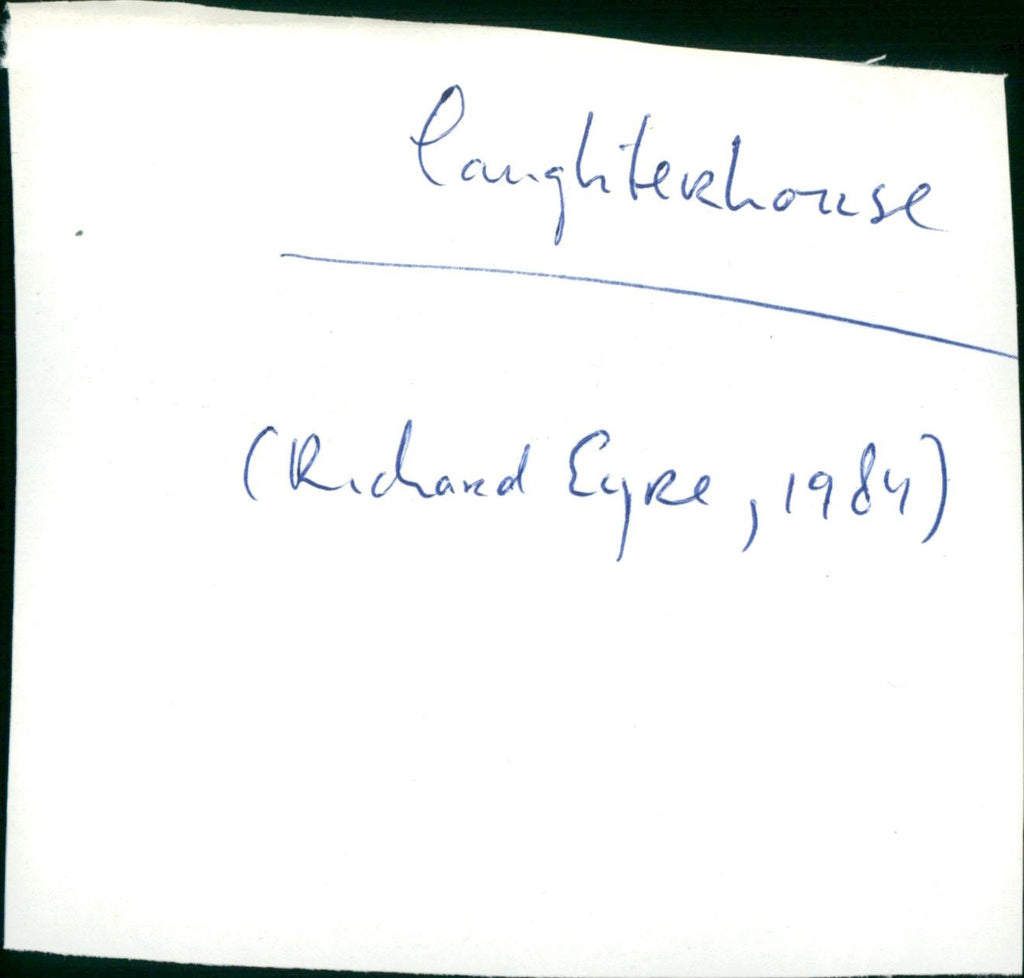 Laughterhouse
(Richard Eyre, 1984)